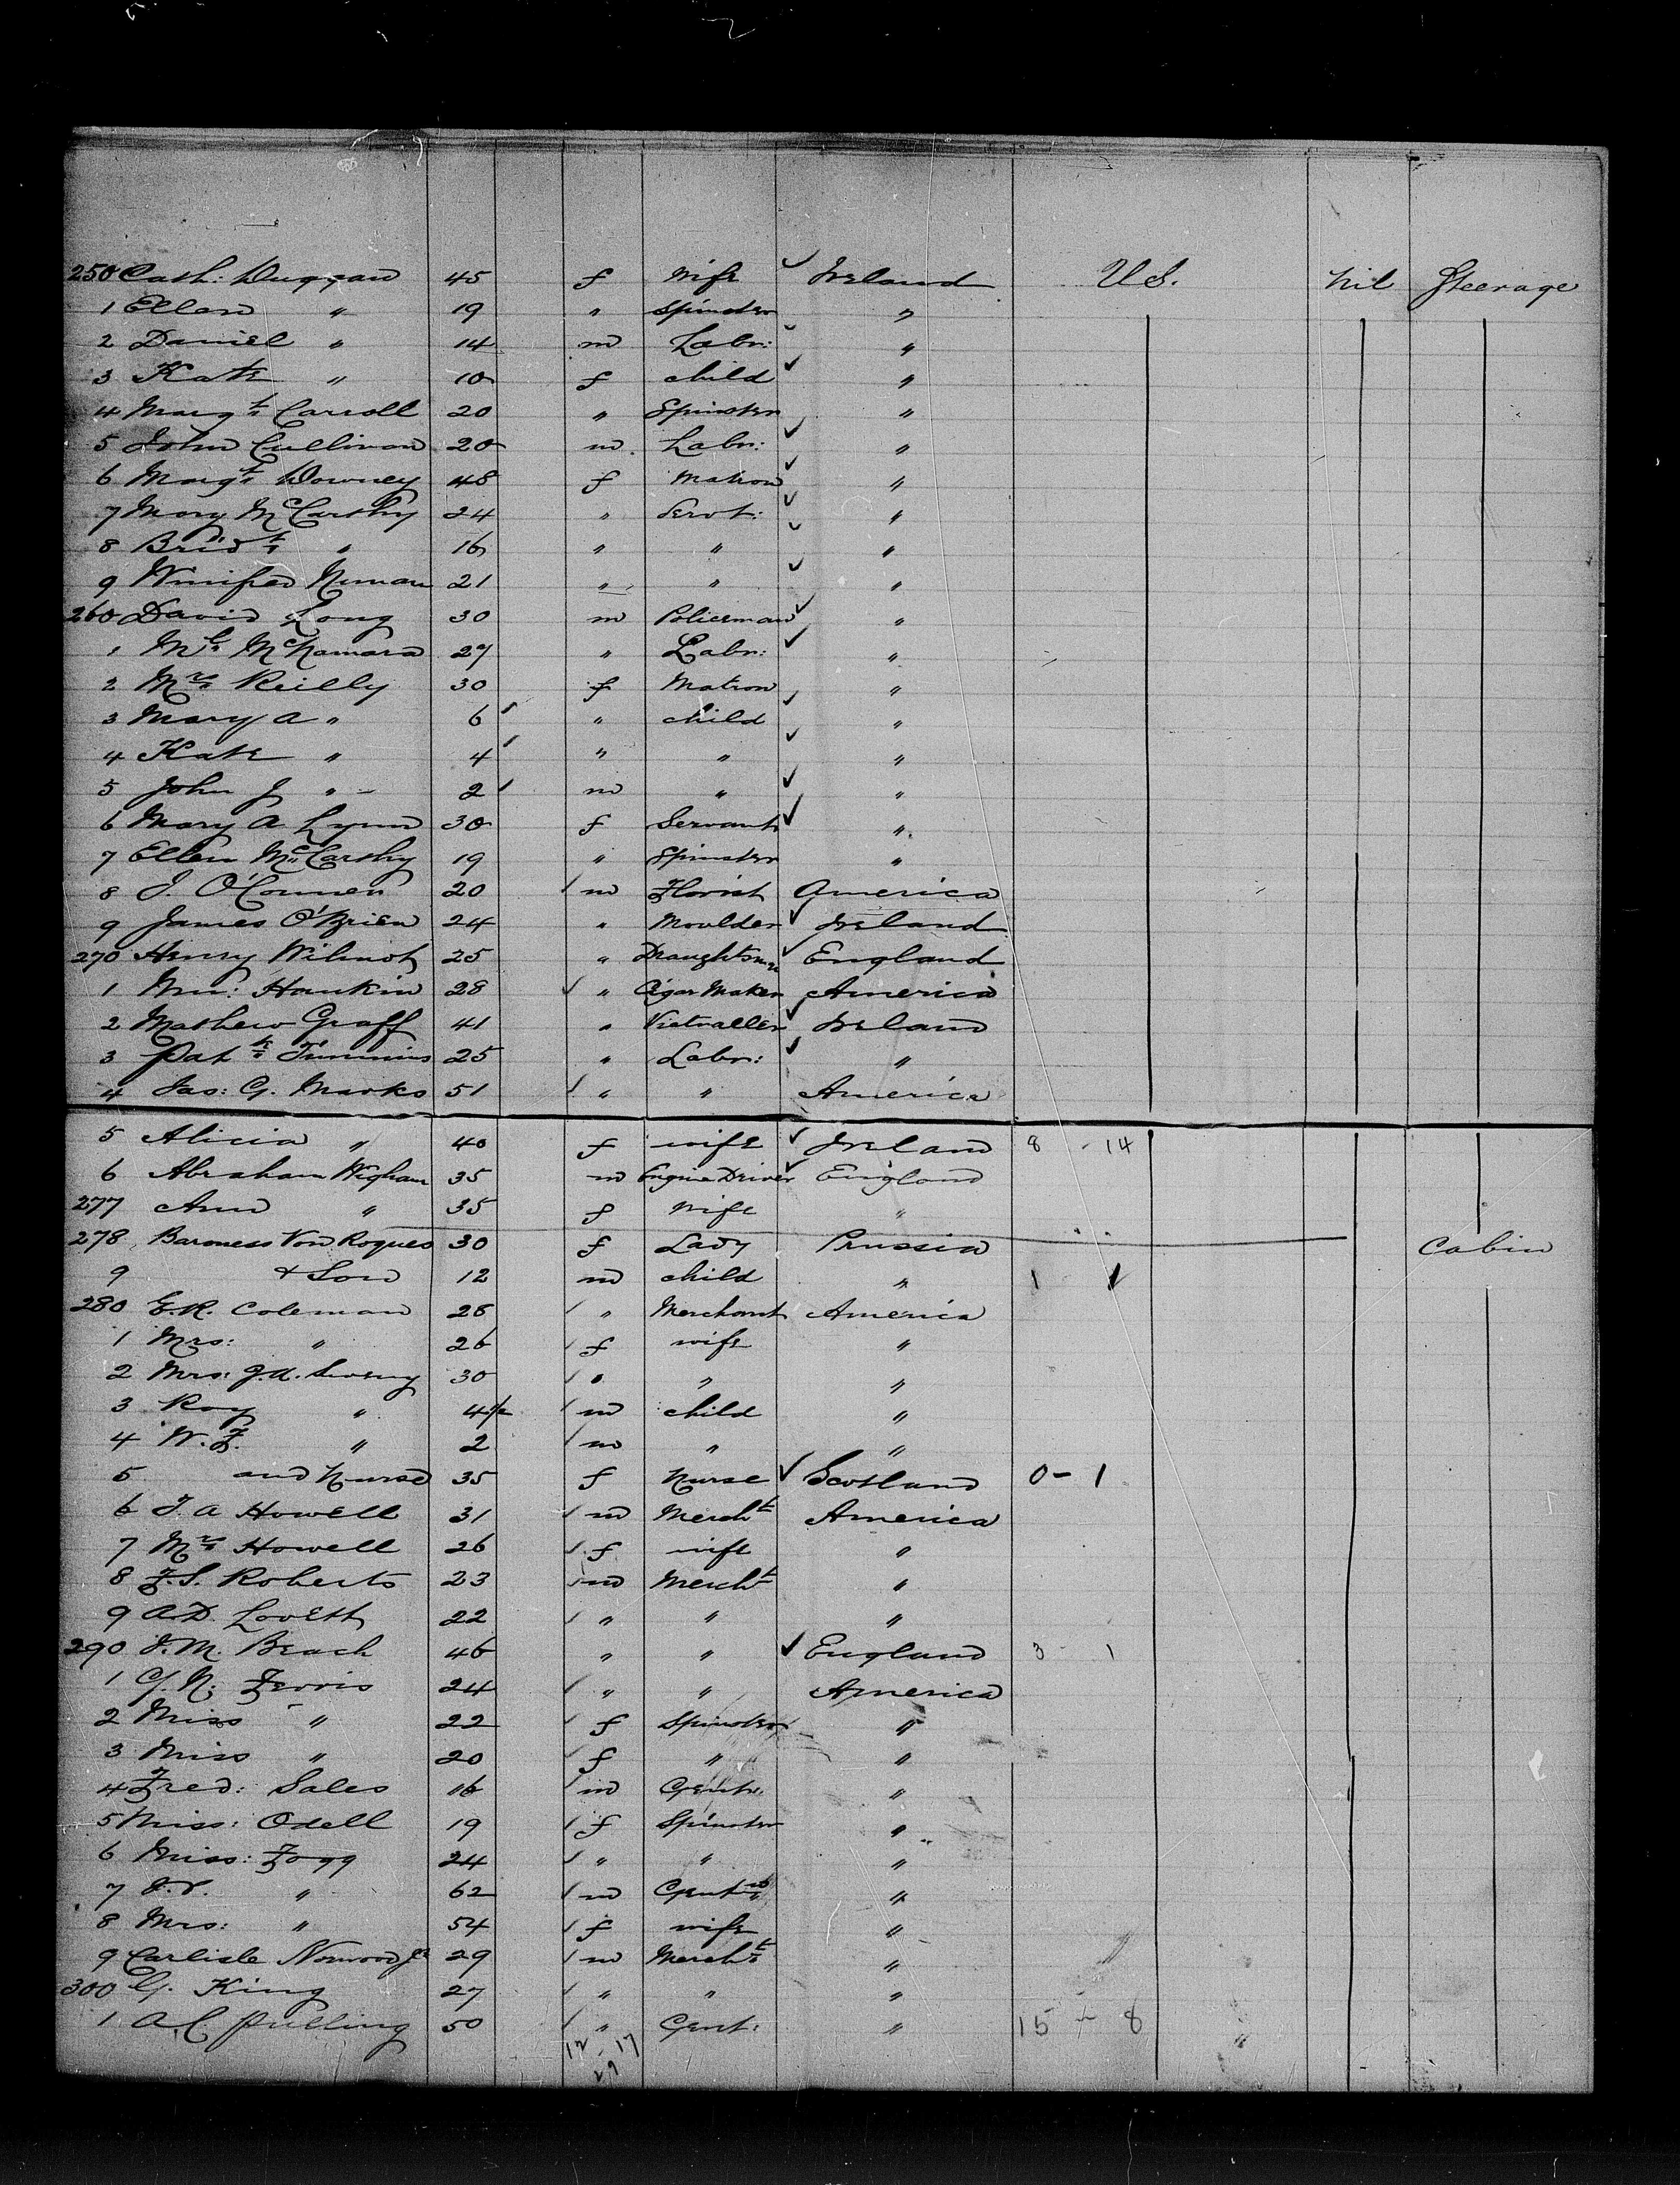 250 Cath: Duggan 45 f Wife Ireland U.S. nil Steerage
1 Ellen " 19 " Spinster "
2 Daniel " 14 m Labr: "
3 Kate " 10 f child "
4 Margt Carroll 20 " Spinster "
5 John Cullinan 20 m. Labr: "
6 Margt Downey 48 f Matron "
7 Mary McCarthy 24 " Servt: "
8 Bridt " 16 " " "
9 Winifred 21 " " "
260 David Long 30 m Policeman "
1 Ml McNamara 27 " Labr: "
2 Mrs Reilly 30 f Matron "
3 Mary A " 6 " child "
4 Kate " 4 " " "
5 John J " 2 m " "
6 Mary A Lynn 30 f Servant "
7 Ellen McCarthy 19 " Spinster "
8 J. O'Conner 20 m Florist America
9 James O'Brien 24 " Moulder Ireland
270 Henry Wilmot 25 " Draughtsman England
1 Wm: Hankin 28 " Cigar Maker America
2 Mathew Graff 41 " Victualler Ireland
3 Patk Timmins 25 " Labr: "
4 Jas: G. Marks 51 " " America
5 Alicia " 40 f wife Ireland 8 - 14
6 Abraham Wigham 35 m Engine Driver England
277 Ann " 35 f Wife "
278 Baroness Von Roques 30 f Lady Prussia Cabin
9 & Son 12 m child " 1 1
280 E.R. Coleman 28 " Merchant America
1 Mrs: " 26 f wife "
2 Mrs: J.A. 30 " " "
3 Roy " 4 1/2 m child "
4 W.F. " 2 m " "
5 and Nurse 35 f Nurse Scotland 0 - 1
6 T. A Howell 31 m Mercht America
7 Mrs Howell 26 f wife "
8 F.S. Roberts 23 m Mercht "
9 A.D. Lovett 22 " " "
290 J.M. Beach 46 " " England 3 - 1
1 G.N. Ferris 24 " " America
2 Miss " 22 f Spinster "
3 Miss " 20 f " "
4 Fred: Sales 16 m Gent: "
5 Miss: Odell 19 f Spinster "
6 Miss: Fogg 24 " " "
7 " 62 m Gent "
8 Mrs: " 54 f wife "
9 Carlisle Norwood Jr 29 m Mercht "
300 G. King 27 " " "
1 A.C. Pulling 50 " Gent: " 15 + 8
12 - 17
29